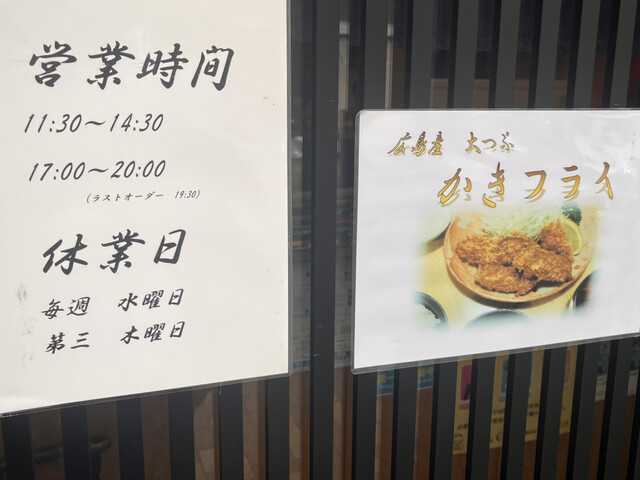 営業時間
11:30～14:30
17:00～20:00
(ラストオーダー 19:30)
休業日
毎週 水曜日
第三 木曜日
広島産 大つぶ
かきフライ